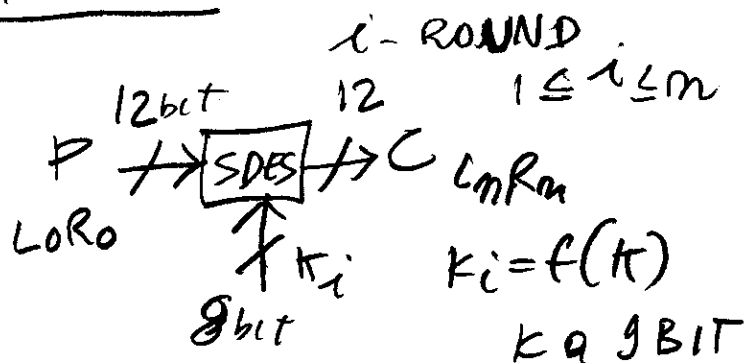 i-ROUND
12bit 12 1 ≤ i ≤ n
P SDES C LnRn
L0R0
Ki Ki = f(K)
8bit K a 9 BIT